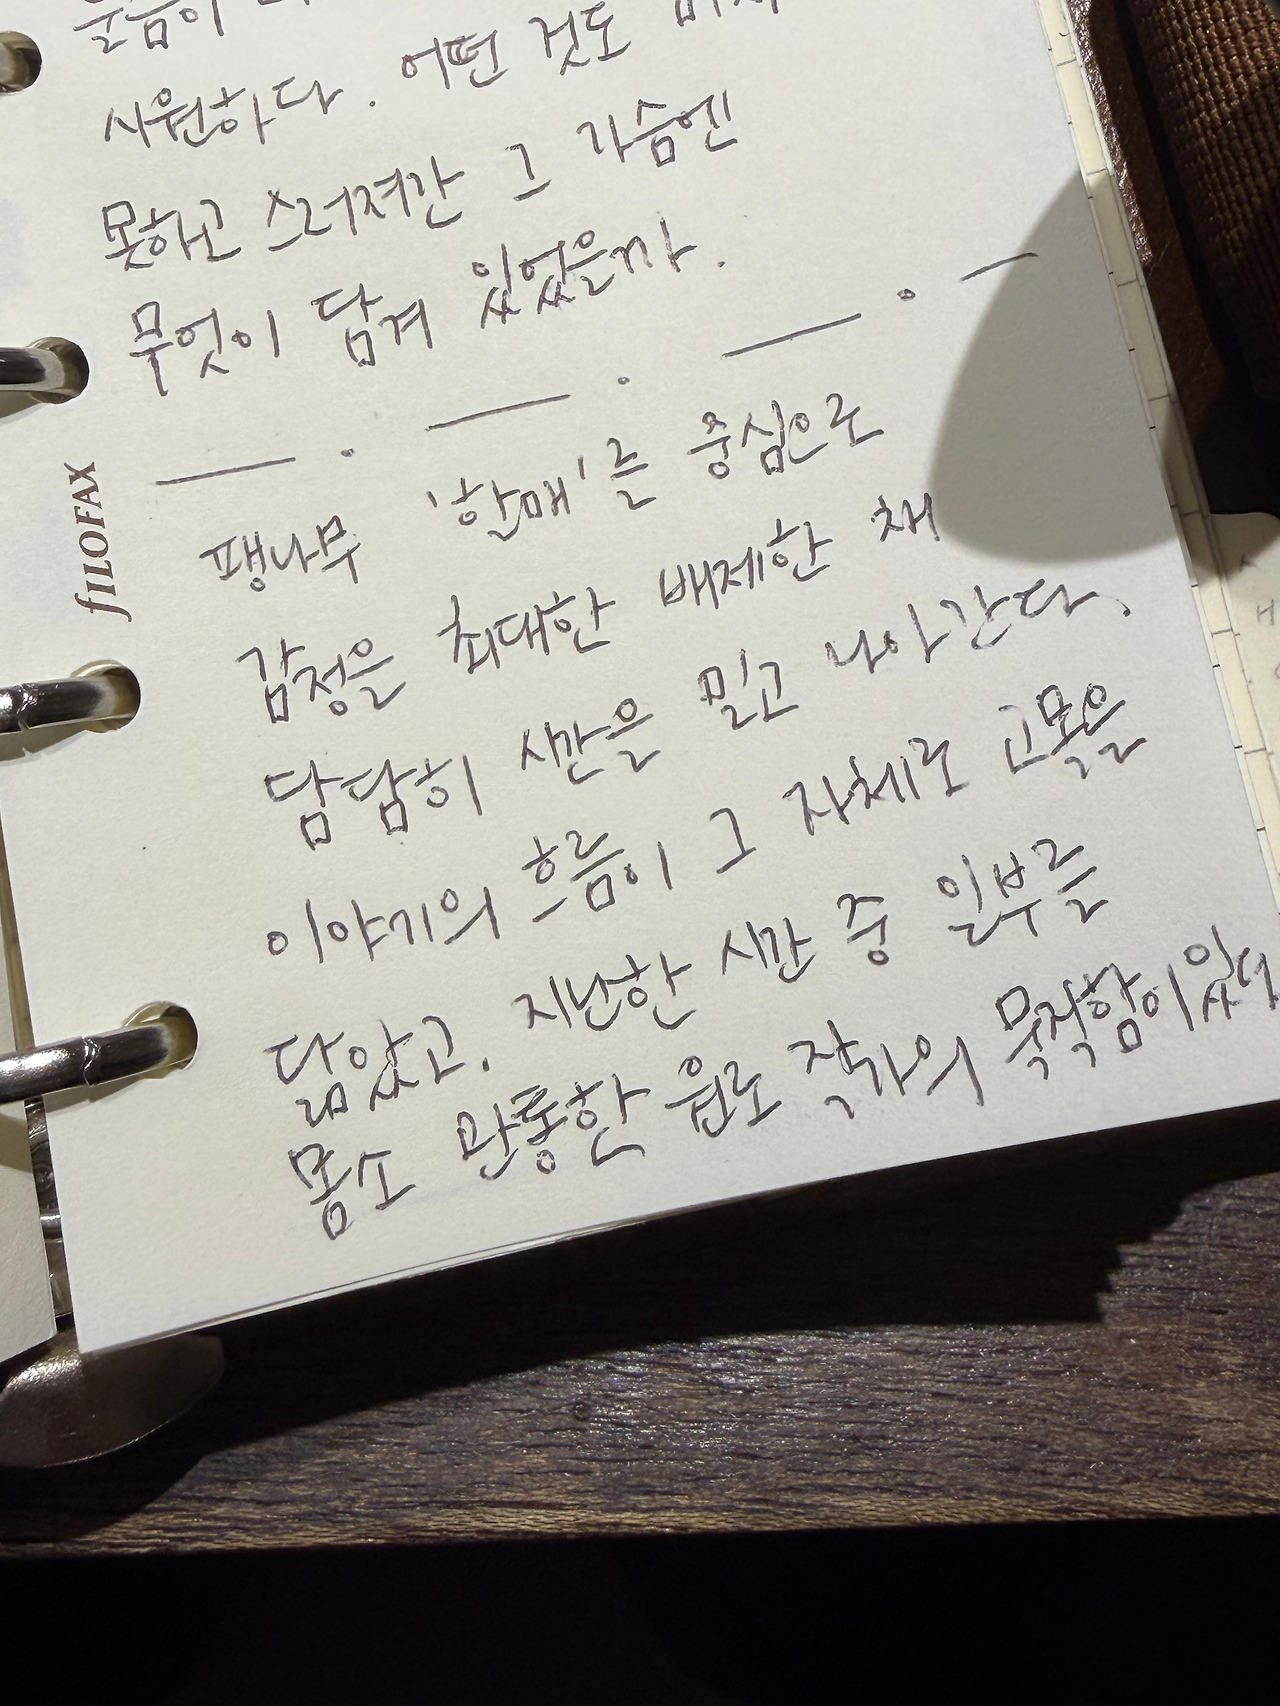 시원하다. 어떤 것도
못하고 스러져간 그 가슴엔
무엇이 담겨 있었을까.
팽나무 '할매'를 중심으로
감정은 최대한 배제한 채
담담히 시간을 밀고 나아간다.
이야기의 흐름이 그 자체로 고목을
닮았고, 지난한 시간 중 일부를
몸소 관통한 원로 작가의 묵직함이 있
fILOFAX